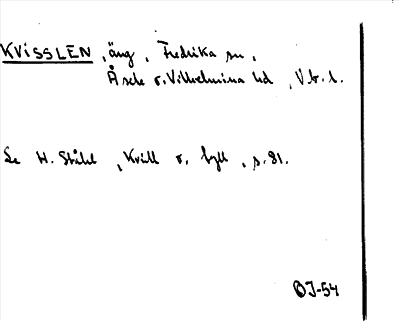 KVISSLEN, äng, Fredrika sn,
Åsele o. Vilhelmina hd, V.b.l.
Se H. Ståhl, Kvill o. byll, s. 81.
OJ-54